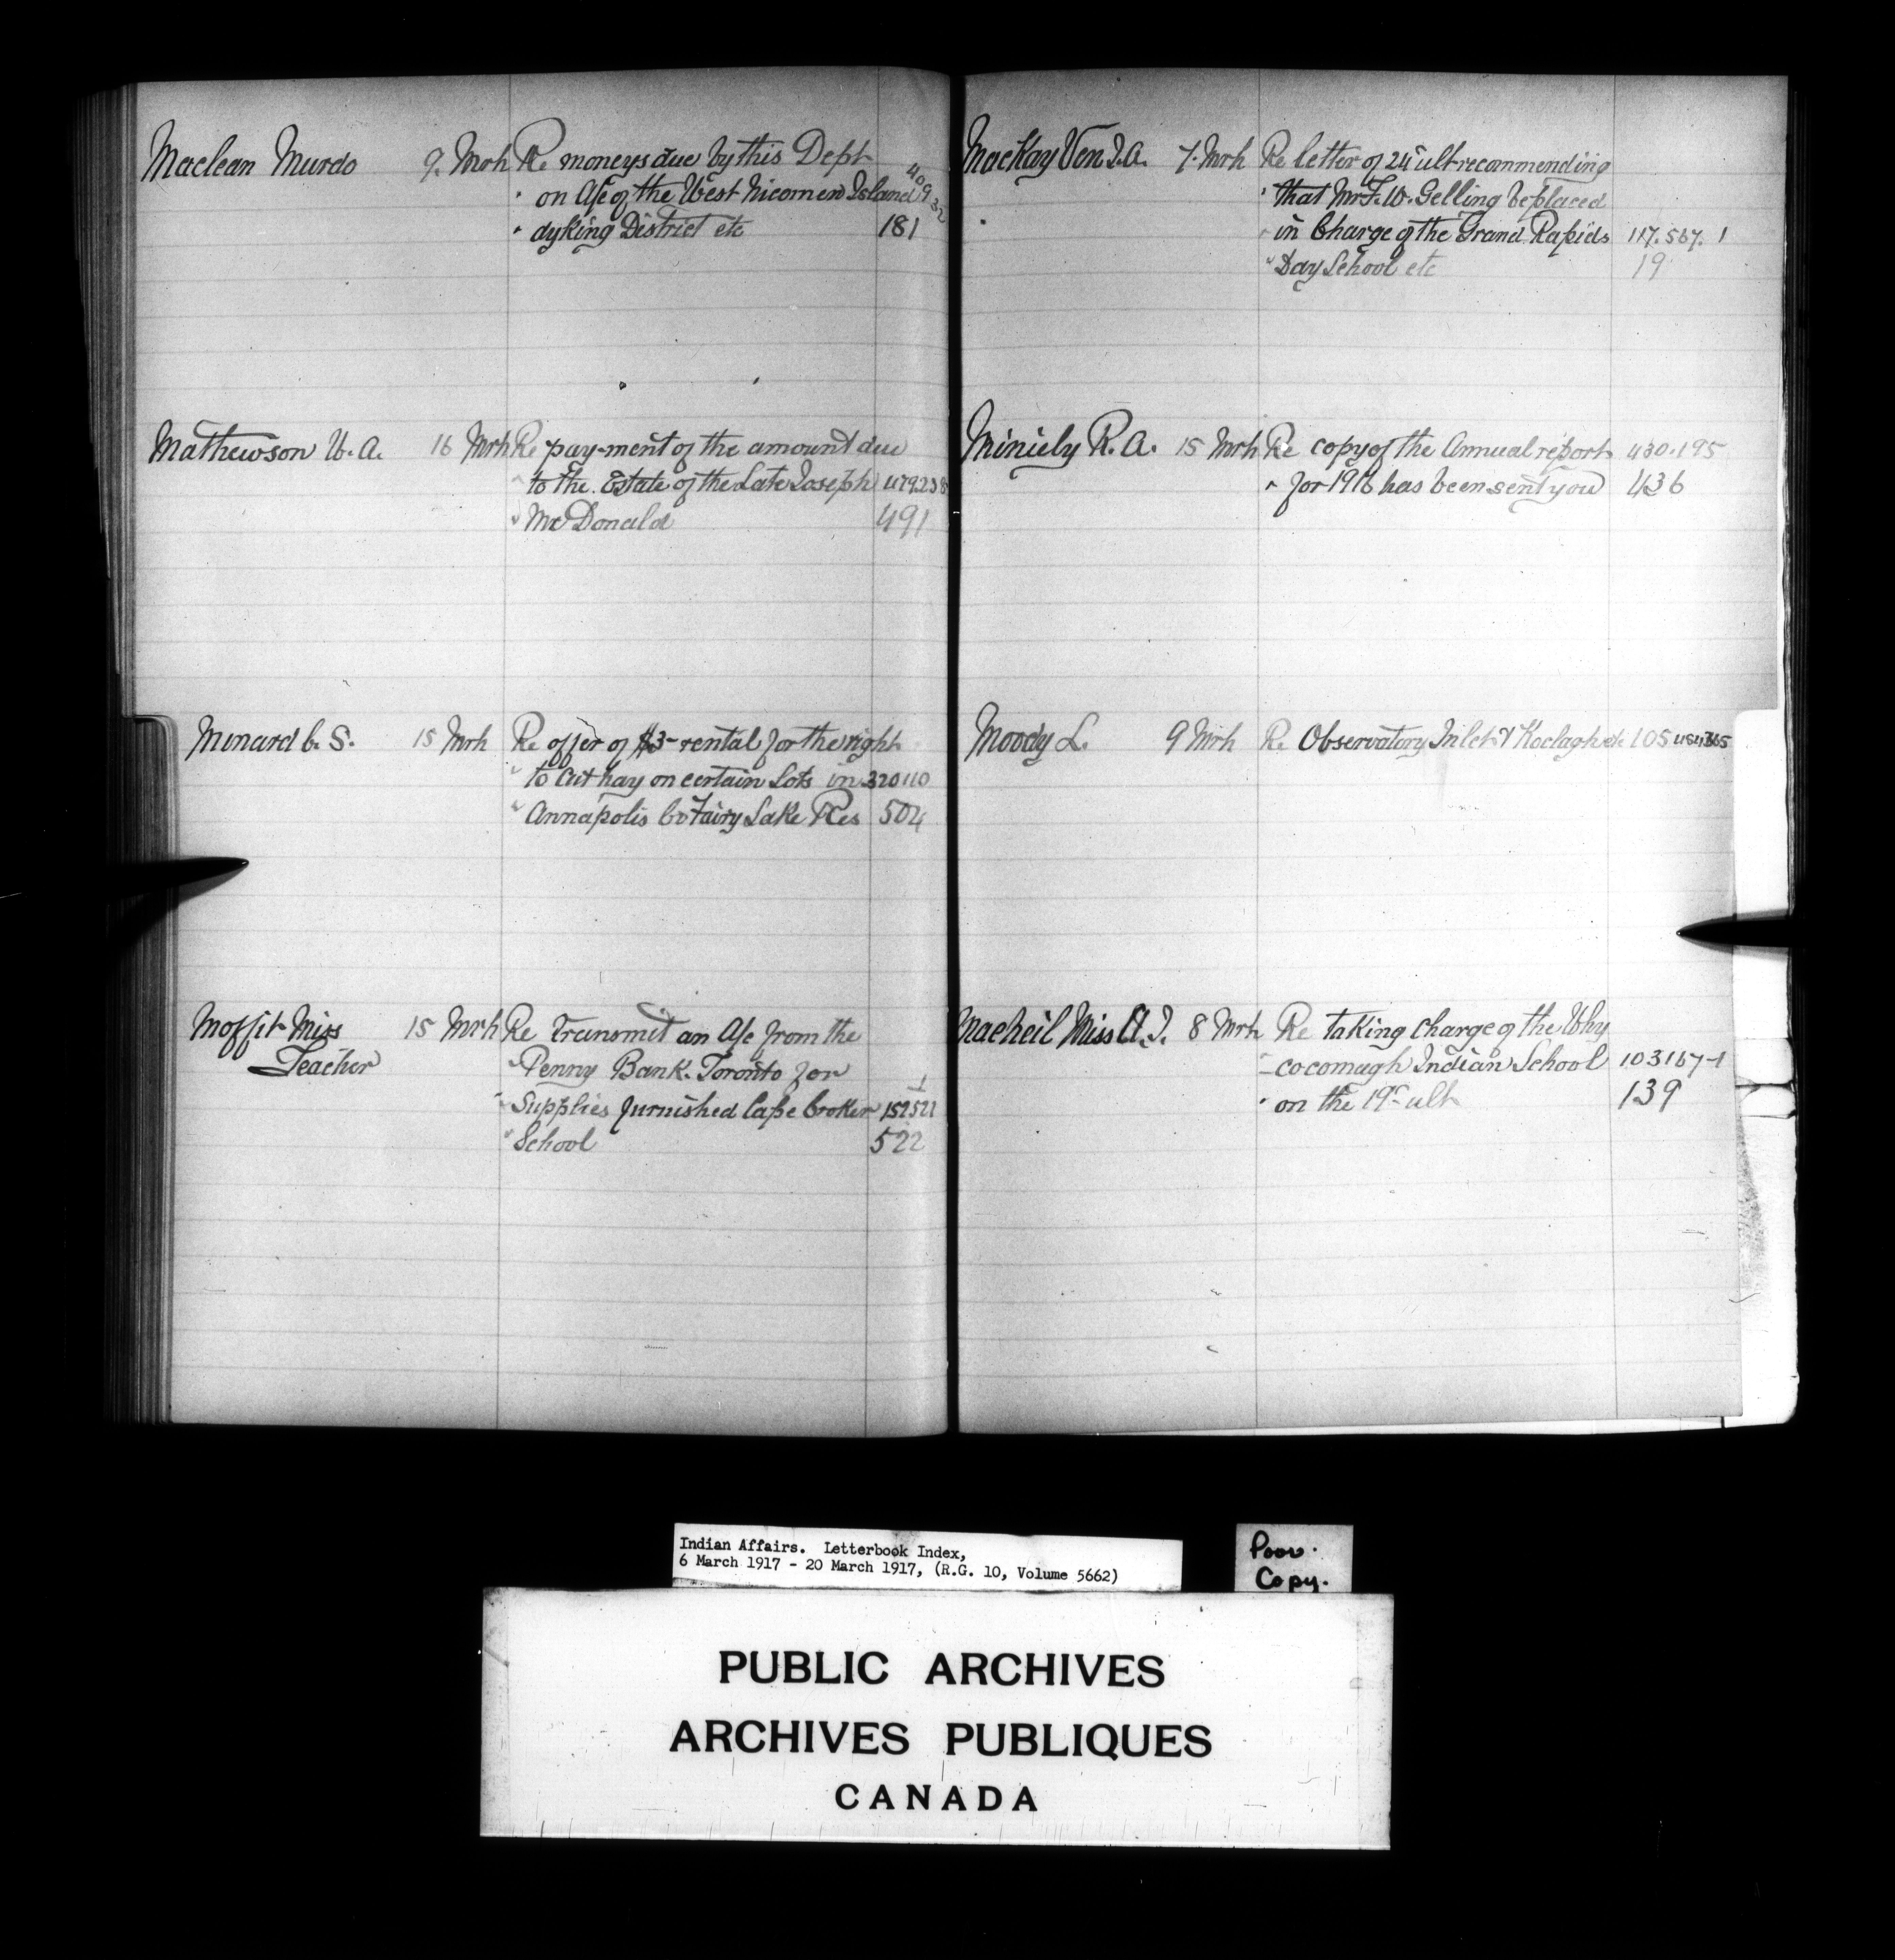 Maclean Murdo 9. Mrh Re moneys due by this Dept
" on A/c of the West Nicomen Island 40932
" dyking District etc 181
Mathewson W. A. 16 Mrh Re pay-ment of the amount due
" to the Estate of the Late Joseph 479238
" McDonald 491
Minard C. S. 15 Mrh Re offer of $3- rental for the right
" to cut hay on certain Lots in 320110
" Annapolis Co Fairy Lake Res 504
Moffit Miss 15 Mrh Re transmit an A/c from the
Teacher " Penny Bank. Toronto for
" Supplies furnished Cape Croker 152521-1
" School 522
MacKay Ven J.A. 7. Mrh Re letter of 24 ult recommending
" that Mr F. W. Gelling be placed
" in Charge of the Grand Rapids 117.567.1
" Day School etc 19
Miniely R. A. 15 Mrh Re copy of the Annual report 430.195
" for 1916 has been sent you 436
Moody L. 9 Mrh Re Observatory Inlet etc 105
MacNeil Miss A. J. 8 Mrh Re taking charge of the Why
- cocomagh Indian School 103167-1
" on the 19" ult 139
Indian Affairs. Letterbook Index,
6 March 1917 - 20 March 1917, (R.G. 10, Volume 5662)
Poor.
Copy.
PUBLIC ARCHIVES
ARCHIVES PUBLIQUES
CANADA